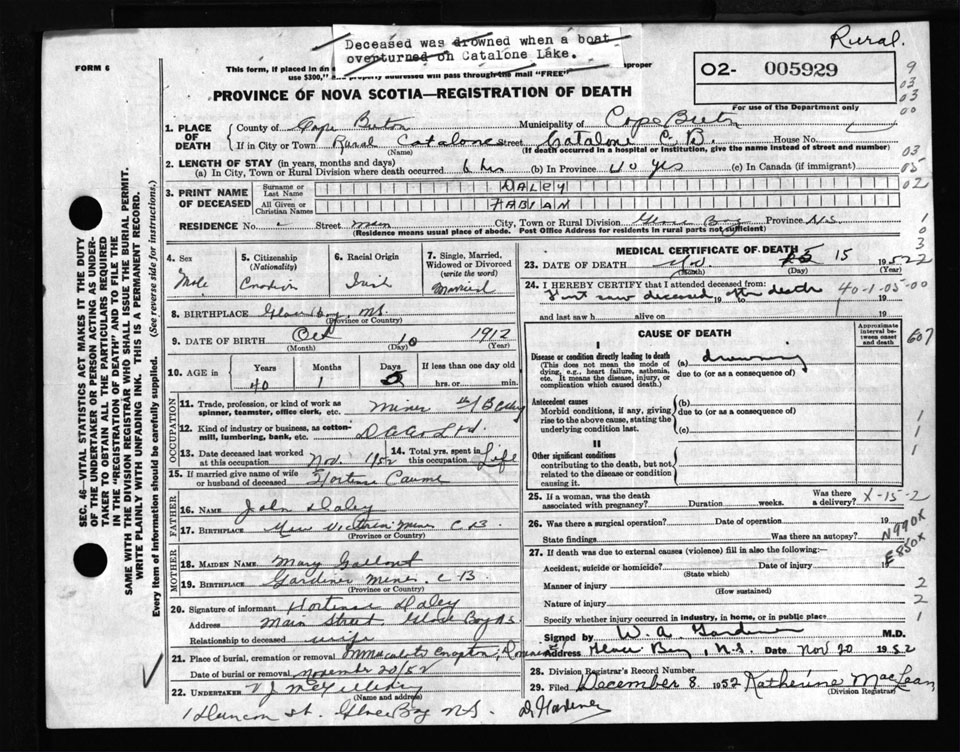 Deceased was drowned when a boat
overturned on Catalone Lake.
Rural.
FORM 6
This form, if placed in an improper
use $300," and properly addressed will pass through the mail "FREE"
02- 005929
For use of the Department only
PROVINCE OF NOVA SCOTIA—REGISTRATION OF DEATH
SEC. 46—VITAL STATISTICS ACT MAKES IT THE DUTY
OF THE UNDERTAKER OR PERSON ACTING AS UNDER-
TAKER TO OBTAIN ALL THE PARTICULARS REQUIRED
IN THE "REGISTRATION OF DEATH" AND TO FILE THE
SAME WITH THE DIVISION REGISTRAR WHO SHALL ISSUE THE BURIAL PERMIT.
WRITE PLAINLY WITH UNFADING INK. THIS IS A PERMANENT RECORD.
Every item of Information should be carefully supplied. (See reverse side for instructions.)
1. PLACE OF DEATH
County of Cape Breton Municipality of Cape Breton
If in City or Town Rural Catalone Street Catalone C.B. House No.
(Name) (If death occurred in a hospital or institution, give the name instead of street and number)
2. LENGTH OF STAY (in years, months and days)
(a) In City, Town or Rural Division where death occurred 6 hrs (b) In Province 40 yrs (c) In Canada (if immigrant)
3. PRINT NAME OF DECEASED
Surname or Last Name DALEY
All Given or Christian Names FABIAN
RESIDENCE No. Street Main City, Town or Rural Division Glace Bay Province N.S.
(Residence means usual place of abode. Post Office Address for residents in rural parts not sufficient)
4. Sex Male
5. Citizenship (Nationality) Canadian
6. Racial Origin Irish
7. Single, Married, Widowed or Divorced (write the word) Married
8. BIRTHPLACE Glace Bay, N.S.
(Province or Country)
9. DATE OF BIRTH Oct 10 1912
(Month) (Day) (Year)
10. AGE in Years Months Days If less than one day old
40 1 5 hrs. or min.
OCCUPATION
11. Trade, profession, or kind of work as spinner, teamster, office clerk, etc. Miner
12. Kind of industry or business, as cotton-mill, lumbering, bank, etc. D C Co Ltd.
13. Date deceased last worked at this occupation Nov. 1952
14. Total yrs. spent in this occupation Life
15. If married give name of wife or husband of deceased Hortense
FATHER
16. Name John Daley
17. Birthplace New Victoria Mines C.B.
(Province or Country)
MOTHER
18. MAIDEN NAME Mary Gallant
19. BIRTHPLACE Gardiner Mines. C.B.
(Province or Country)
20. Signature of informant Hortense Daley
Address Main Street, Glace Bay N.S.
Relationship to deceased wife
21. Place of burial, cremation or removal Immaculate Conception,
Date of burial or removal November 20/52
22. UNDERTAKER V J
(Name and address)
St. Glace Bay N.S.
MEDICAL CERTIFICATE OF DEATH
23. DATE OF DEATH Nov. 15 1952
(Month) (Day) (Year)
24. I HEREBY CERTIFY that I attended deceased from:
First saw deceased after death 19
and last saw h alive on 19
40-1-05-00
CAUSE OF DEATH
Approximate interval between onset and death
I
Disease or condition directly leading to death
(This does not mean the mode of dying, e.g., heart failure, asthenia, etc. It means the disease, injury, or complication which caused death.)
(a) drowning
due to (or as a consequence of)
Antecedent causes
Morbid conditions, if any, giving rise to the above cause, stating the underlying condition last.
(b)
due to (or as a consequence of)
(c)
II
Other significant conditions
contributing to the death, but not related to the disease or condition causing it.
25. If a woman, was the death associated with pregnancy? Duration weeks. Was there a delivery?
X-15-2
26. Was there a surgical operation? Date of operation 19
State findings Was there an autopsy?
N990X
E850X
27. If death was due to external causes (violence) fill in also the following:
Accident, suicide or homicide? Date of injury 19
(State which)
Manner of injury
(How sustained)
Nature of injury
Specify whether injury occurred in industry, in home, or in public place
Signed by W. A. Gardiner M.D.
Address Glace Bay, N.S. Date Nov 20 1952
28. Division Registrar's Record Number
29. Filed December 8 1952 Katherine MacLean
(Division Registrar)
Dr Gardiner
9
03
03
00
03
05
02
1
0
3
22
607
1
1
1
2
2
1